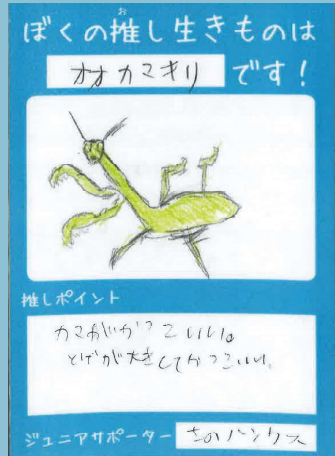 ぼくの推し生きものは
オオカマキリ です！
推しポイント
カマがかっこいい。
とげが大きくてかっこいい。
ジュニアサポーター